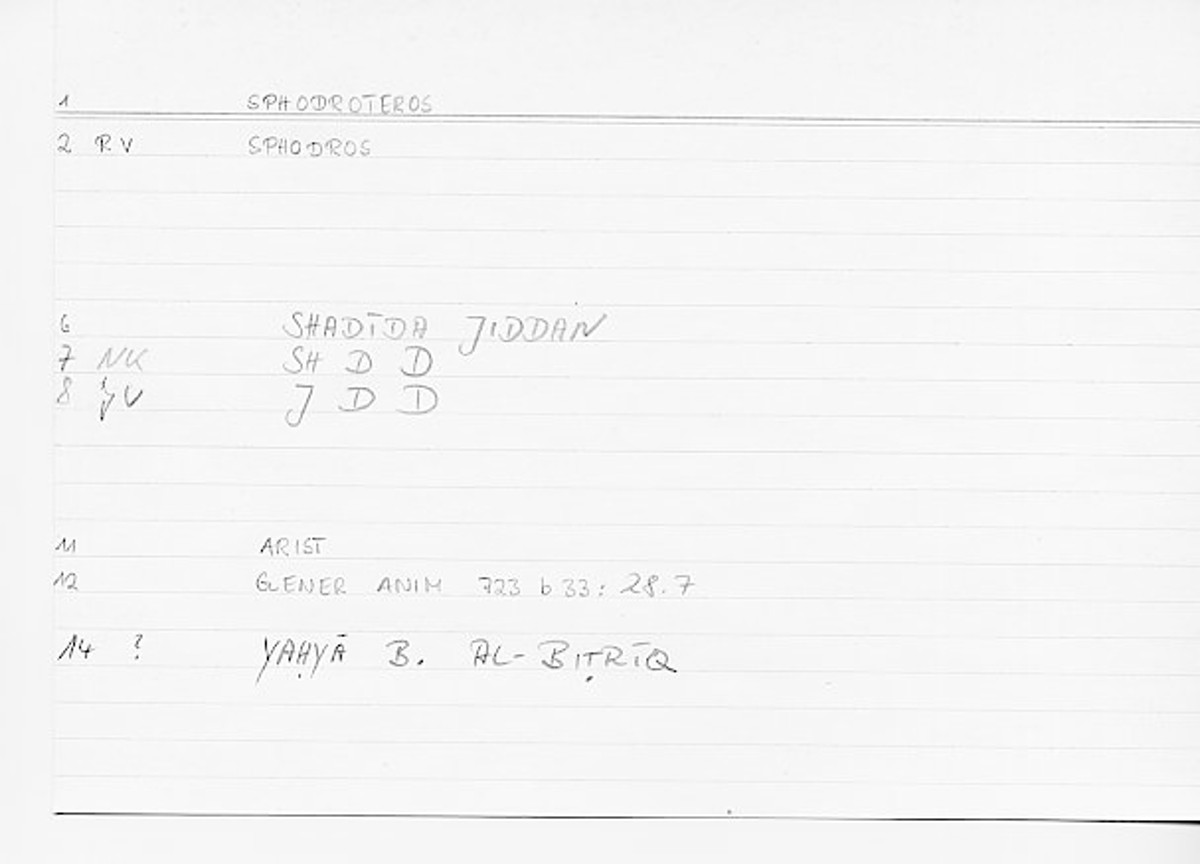 1 SPHODROTEROS
2 RV SPHODROS
6 SHADĪDA JIDDAN
7 NK SH D D
8 V J D D
11 ARIST
12 GENER ANIM 723 b 33: 28.7
14 ? YAḤYĀ B. AL-BIṬRĪQ